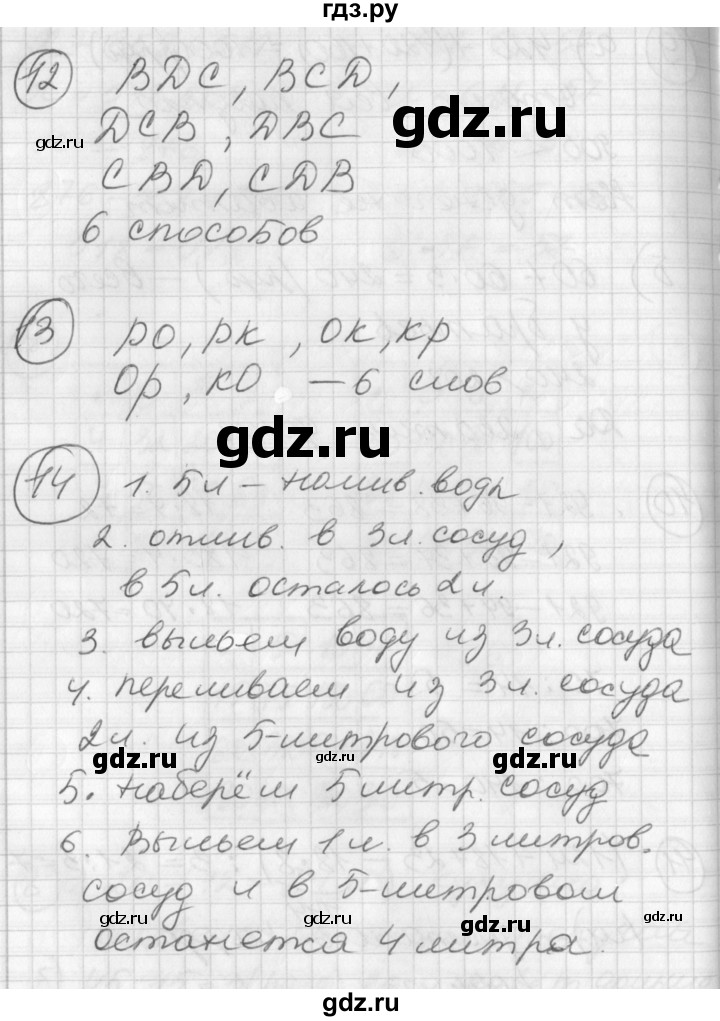 гдз.ру
12 BDC, BCD,
DCB, DBC
CBD, CDB
6 способов
13 ро, рк, ок, кр
ор, ко — 6 слов
14 1. 5л – налив. воды
2. отлив. в 3л. сосуд,
в 5л. осталось 2л.
3. выльем воду из 3л. сосуда
4. переливаем из 3л. сосуда
2л. из 5-литрового сосуда
5. наберём 5 литр. сосуд
6. Выльем 1л. в 3 литров.
сосуд и в 5-литровом
останется 4 литра.
gdz.ru
gdz.ru
gdz.ru
gdz.ru
gdz.ru
gdz.ru
gdz.ru
gdz.ru
gdz.ru
gdz.ru
gdz.ru
gdz.ru